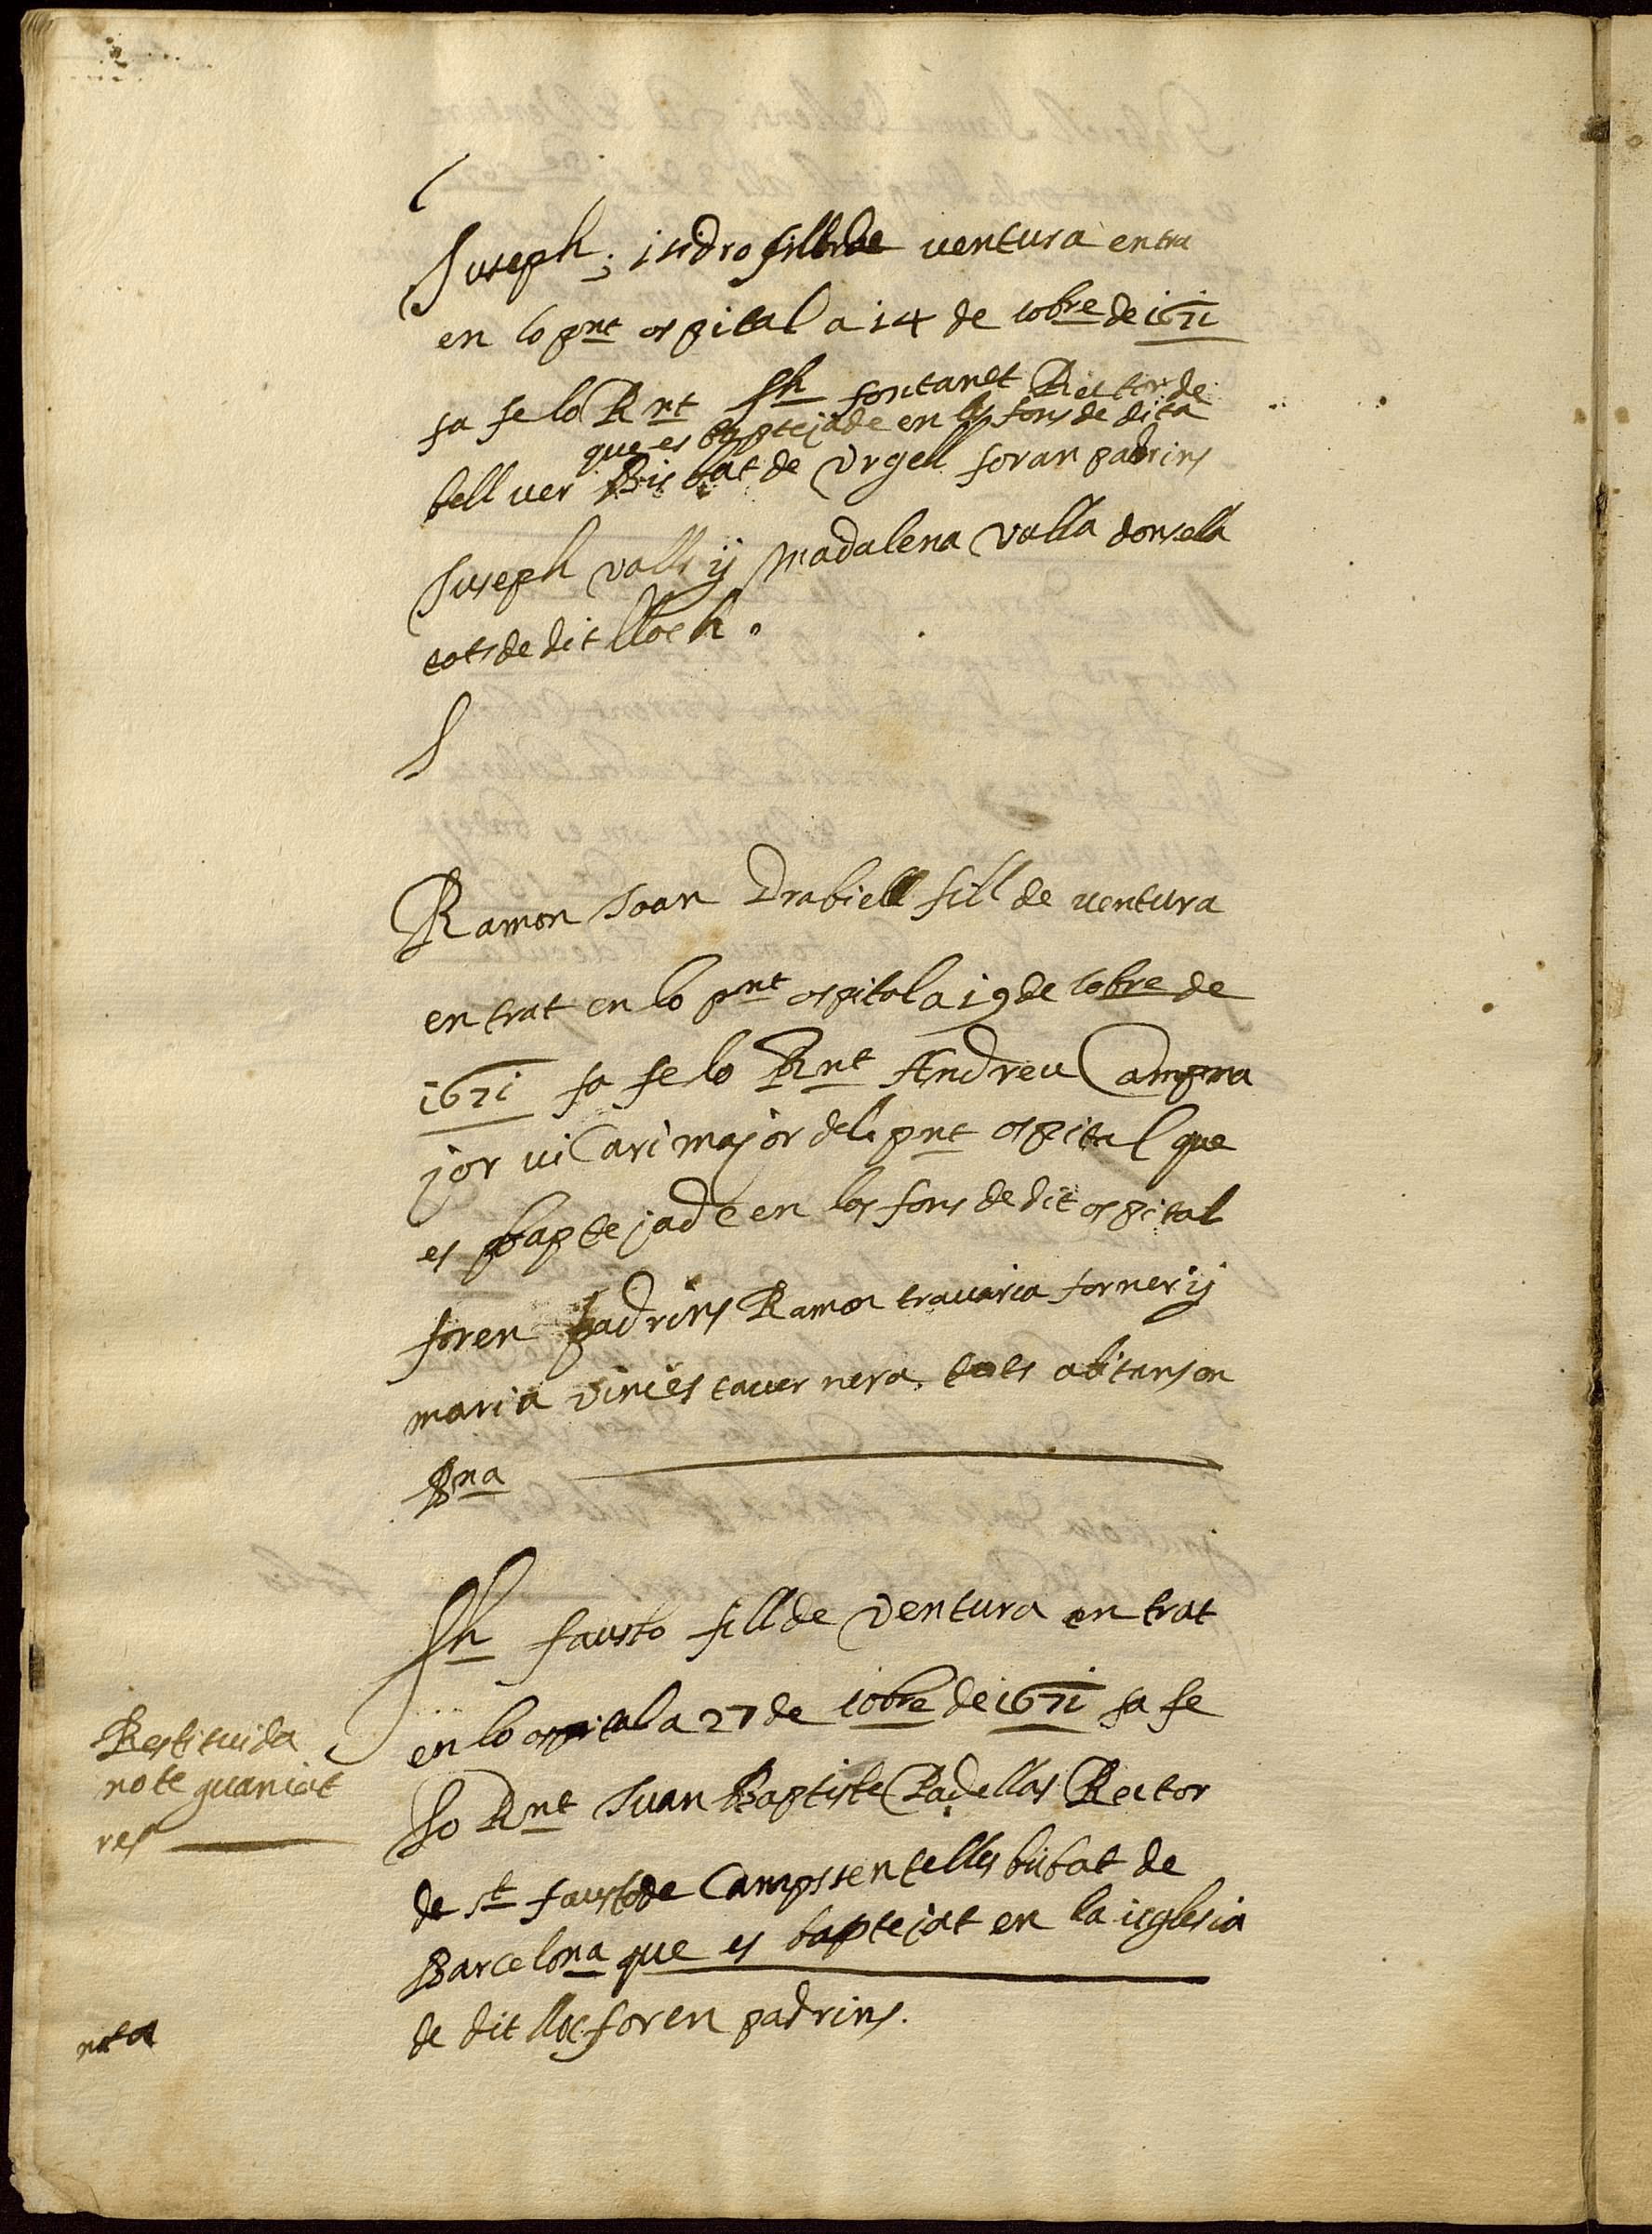 Juseph; isidro fill de ventura entra
en lo pnt ospital a 14 de 10bre de 1671
fa fe lo Rnt Jh fontanet Rector de
que es baptejade en las fons de dita
bell ver Bisbat de Urgell foran padrins
Juseph valls ij Madalena valla donsella
tots de dit lloch.
Ramon Joan Drabiell fill de ventura
entrat en lo pnt ospital a 19 de 10bre de
1671 fa fe lo Rnt Andreu Campma
jor viCari major del pnt ospital que
es baptejade en los fons de dit ospital
foren padrins Ramon travaria forner ij
maria vinies tavernera tots abitans en
Bna
Jh fausto fill de ventura entrat
en lo ospital a 27 de 10bre de 1671 fa fe
lo Rnt Juan Baptiste Padellas Rector
de st fausto de Campssentelles bisbat de
Barcelona que es baptejat en la isglesia
de dit lloc foren padrins.
Restituida
no te guaniat
res
nota